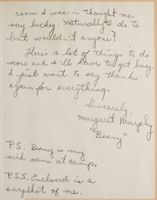 room & was in thought me
very lucky. Naturally I do to
but wouldn't anyone?
Here's a lot of things to do
now and I'll have to get busy.
I just want to say thanks
again for everything.
Sincerely,
Margaret Murphy
"Beany"
P.S. Beany is my
nick name at camp.
P.S.S. Enclosed is a
snapshot of me.